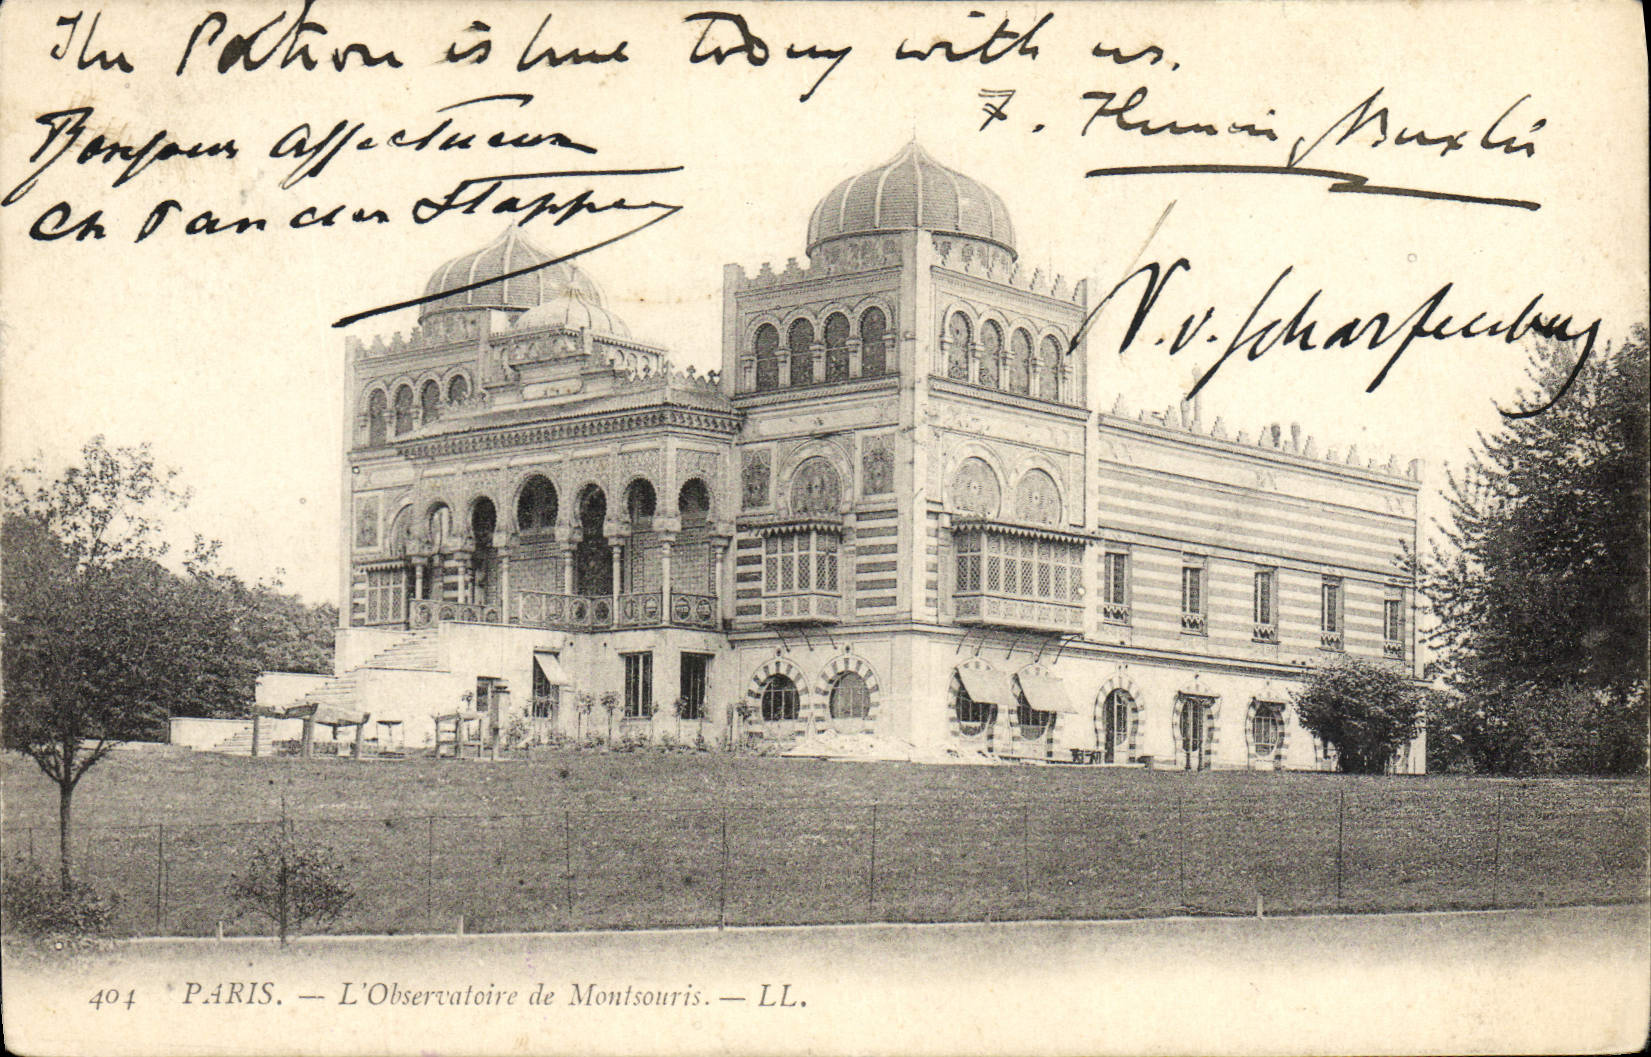 The Patron is here today with us.
Bonjour affectueux
Ch Van der Stappen
V. v. Scharfenberg
404 PARIS. — L'Observatoire de Montsouris. — LL.